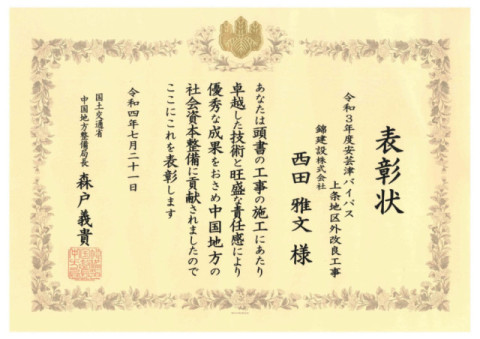 表彰状
令和3年度安芸津バイパス
上条地区外改良工事
錦建設株式会社
西田 雅文 様
あなたは頭書の工事の施工にあたり
卓越した技術と旺盛な責任感により
優秀な成果をおさめ中国地方の
社会資本整備に貢献されましたので
ここにこれを表彰します
令和四年七月二十一日
国土交通省
中国地方整備局長 森戸義貴